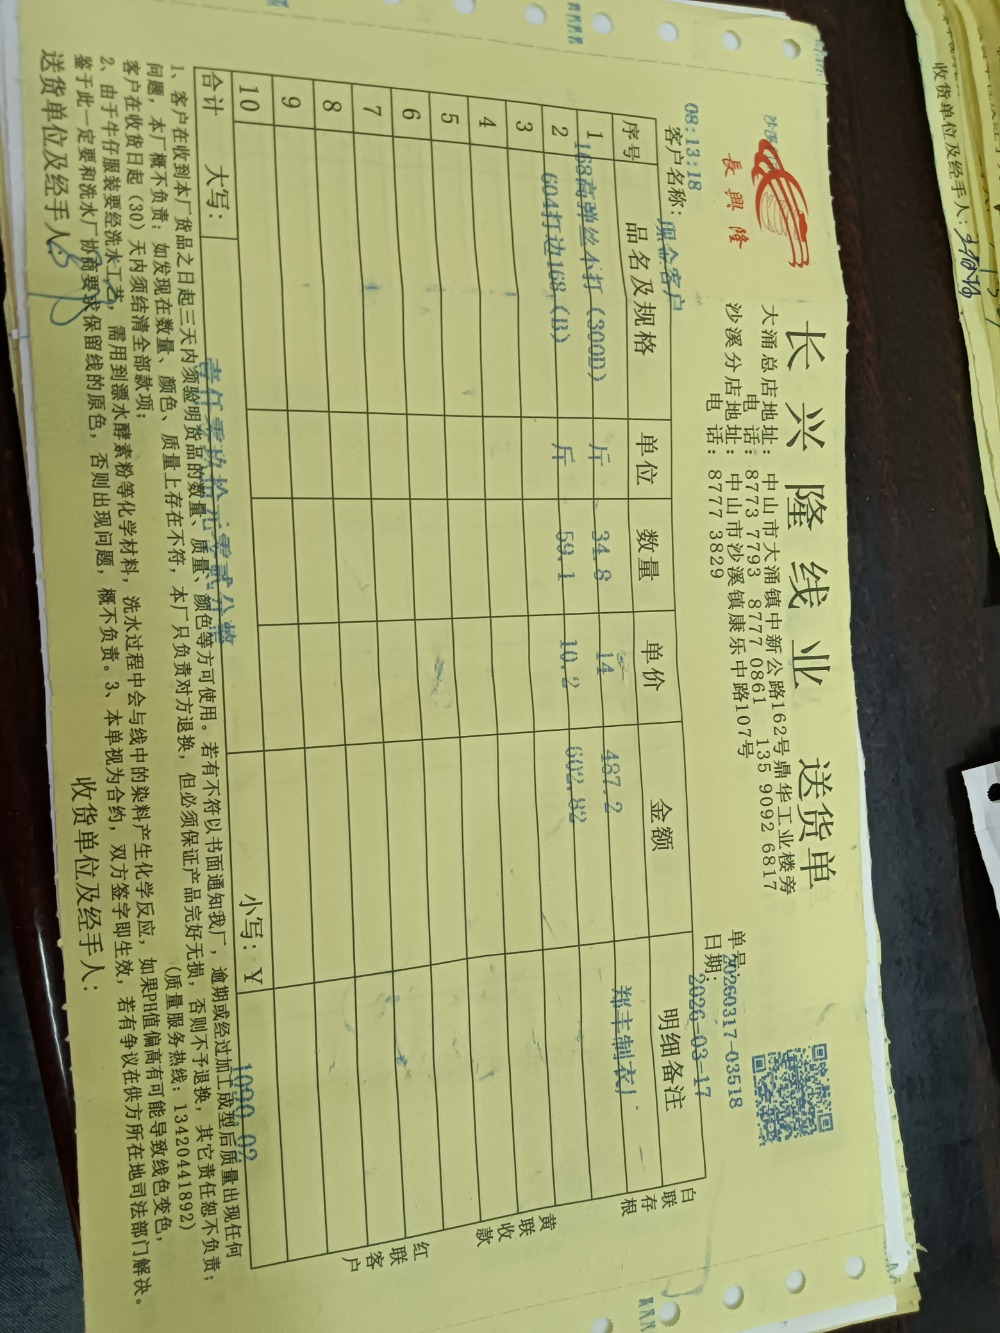 長興隆
长兴隆线业 送货单
大涌总店地址：中山市大涌镇中新公路162号鼎华工业楼旁
电话：8773 7793 8777 0861 135 9092 6817
沙溪分店地址：中山市沙溪镇康乐中路107号
电话：8777 3829
单号：20260317-03518
08:13:18
日期：2026-03-17
客户名称：现金客户
序号 品名及规格 单位 数量 单价 金额 明细备注
1 168高弹丝不打(300D) 斤 34.8 14 487.2 郑丰制衣厂
2 604打边168,(B) 斤 59.1 10.2 602.82
3
4
5
6
7
8
9
10
合计 大写：壹仟零玖拾元零贰分整 小写：￥1090.02
白联存根
黄联收款
红联客户
1、客户在收到本厂货品之日起三天内须验明货品的数量、质量、颜色等方可使用。若有不符以书面通知我厂，逾期或经过加工成型后质量出现任何
问题，本厂概不负责；如发现在数量、颜色、质量上存在不符，本厂只负责对方退换，但必须保证产品完好无损，否则不予退换，其它责任恕不负责；
客户在收货日起（30）天内须结清全部款项； （质量服务热线：13420441892）
2、由于牛仔服装要经洗水工艺，需用到漂水酵素粉等化学材料，洗水过程中会与线中的染料产生化学反应，如果PH值偏高有可能导致线色变色，
鉴于此一定要和洗水厂协商要求保留线的原色，否则出现问题，概不负责。3、本单视为合约，双方签字即生效，若有争议在供方所在地司法部门解决。
送货单位及经手人： 收货单位及经手人：
收货单位及经手人：